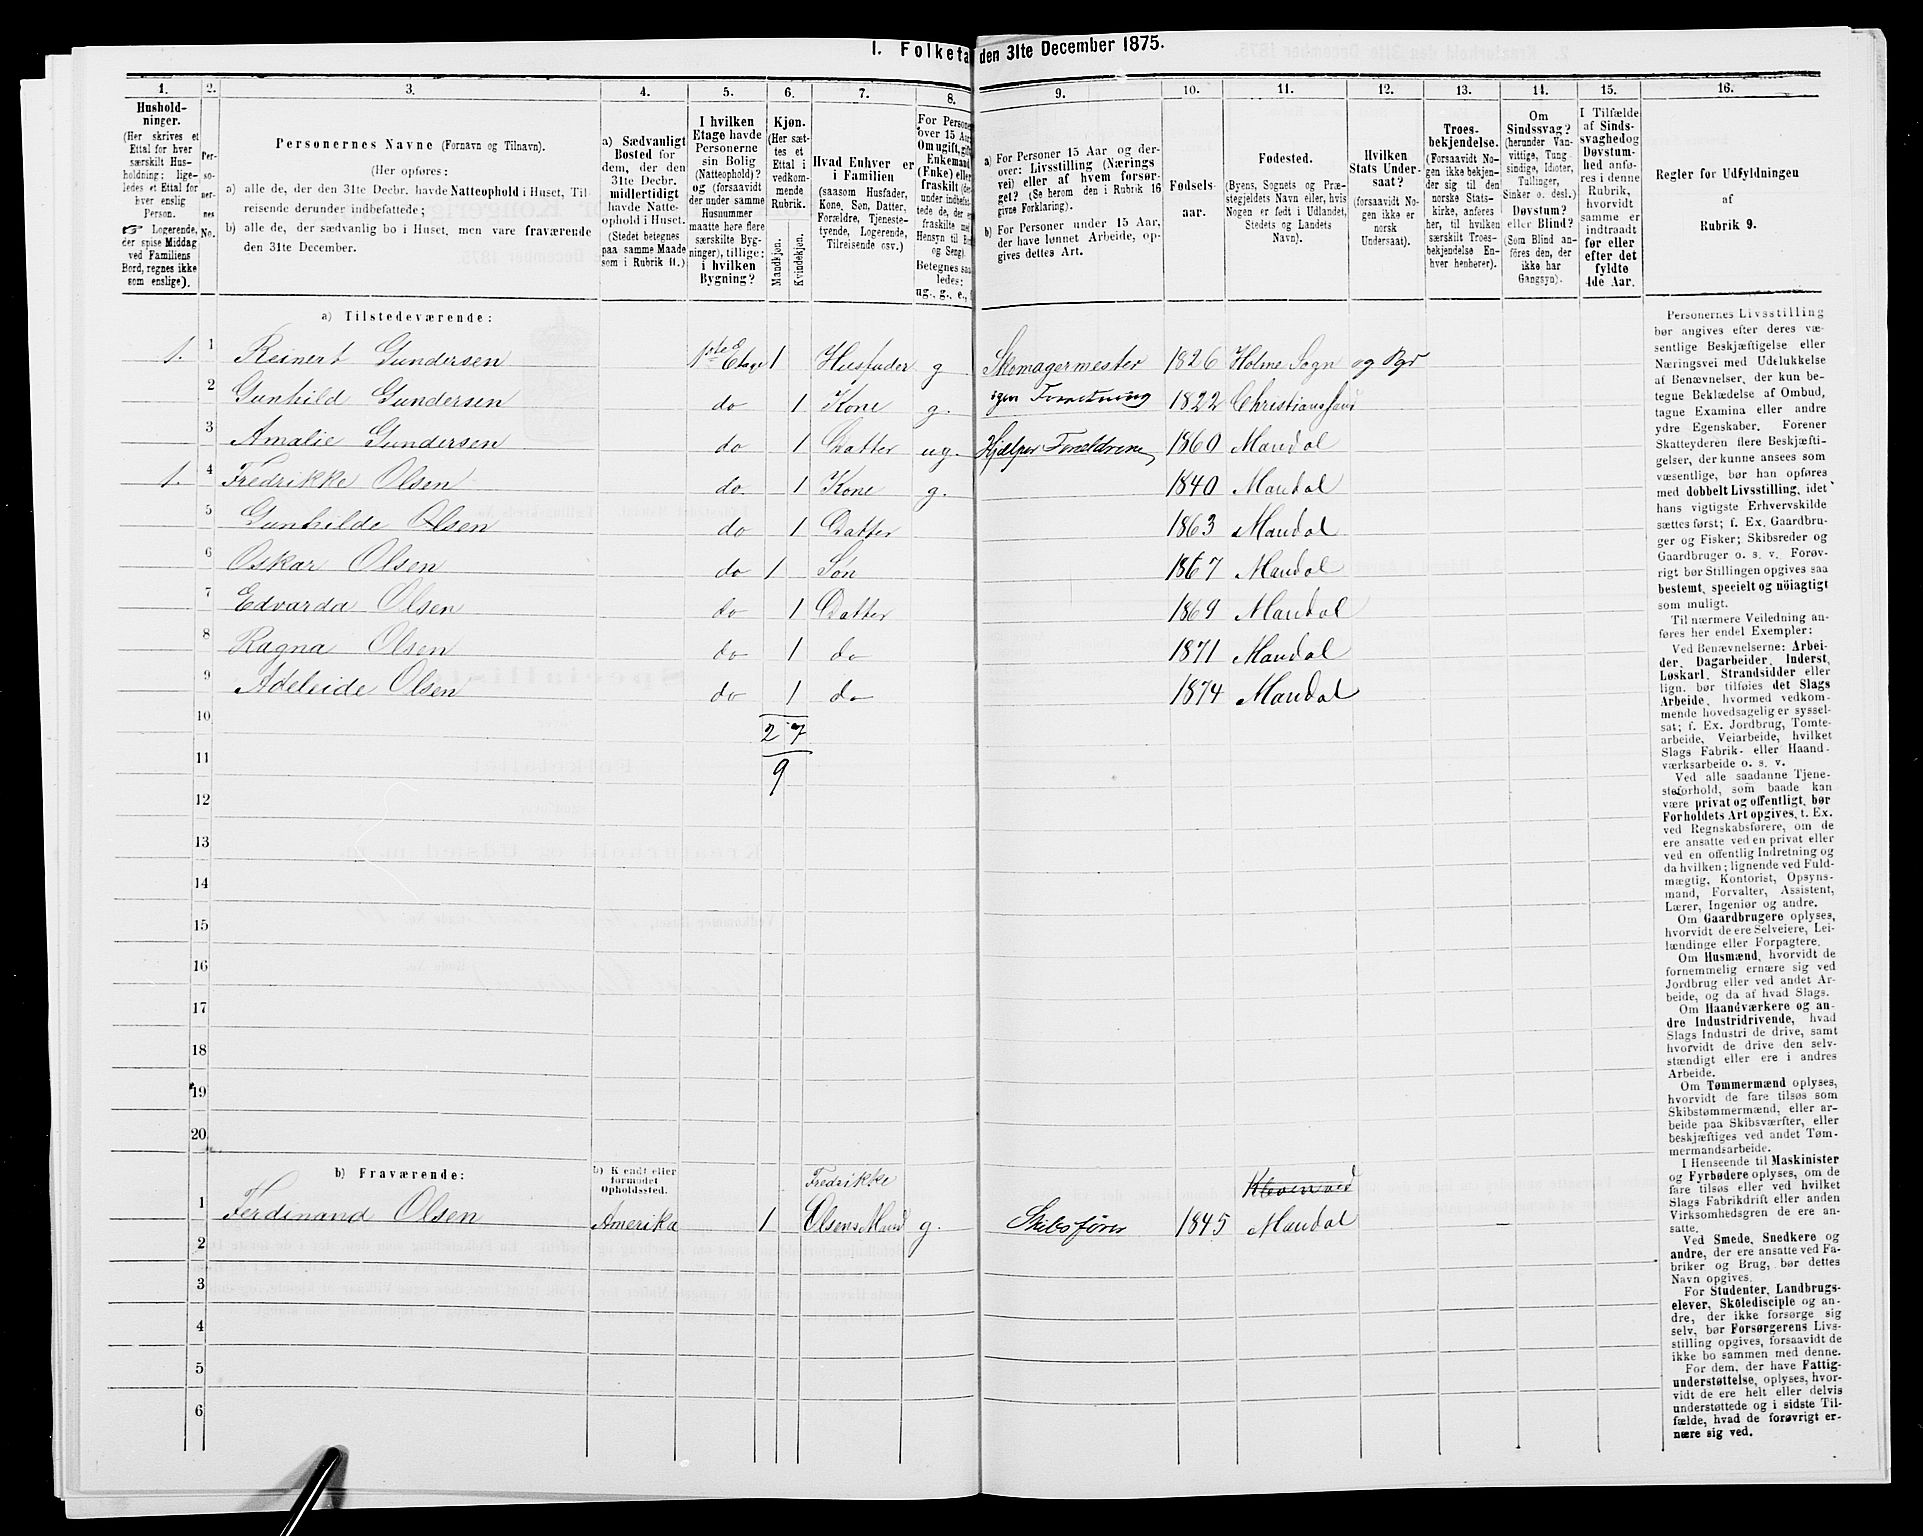 I. Folketa den 31te December 1875.
1. 2. 3. 4. 5. 6. 7. 8. 9. 10. 11. 12. 13. 14. 15. 16.
Hushold-
ninger.
(Her skrives et
Ettal for hver
særskilt Hus-
holdning; lige-
ledes et Ettal for
hver enslig
Person.
☞ Logerende,
der spise Middag
ved Familiens
Bord, regnes ikke
som enslige).
Per-
so-
ner-
nes
No.
Personernes Navne (Fornavn og Tilnavn).
(Her opføres:
a) alle de, der den 31te Decbr. havde Natteophold i Huset, Til-
reisende derunder indbefattede;
b) alle de, der sædvanlig bo i Huset, men vare fraværende
den 31te December.
a) Sædvanligt
Bosted for
dem, der den
31te Decbr.
midlertidigt
havde Natte-
ophold i Huset.
(Stedet betegnes
paa samme Maade
som i Rubrik 11.)
I hvilken
Etage havde
Personerne
sin Bolig
(Natteophold)?
og (forsaavidt
der under samme
Husnummer
maatte høre flere
særskilte Byg-
ninger), tillige:
i hvilken
Bygning?
Kjøn.
(Her sæt-
tes et
Ettal i
vedkom-
mende
Rubrik.
Mandkjøn.
Kvindekjøn.
Hvad Enhver er
i Familien
(saasom Husfader,
Kone, Søn, Datter,
Forældre, Tjeneste-
tyende, Logerende,
Tilreisende osv.).
For Persone
over 15 Aar
Om ugift, gift
Enkemand
(Enke) eller
fraskilt (de
under indbefat-
tede de, der e
fraskilte me
Hensyn til Bo
og Seng).
Betegnes saa
ledes:
ug., g., e.,
a) For Personer 15 Aar og der-
over: Livsstilling (Nærings
vei) eller af hvem forsør-
get? (Se herom den i Rubrik 16
givne Forklaring).
b) For Personer under 15 Aar,
der have lønnet Arbeide, op-
gives dettes Art.
Fødsels-
aar.
Fødested.
(Byens, Sognets og Præ-
stegjeldets Navn eller, hvis
Nogen er født i Udlandet,
Stedets og Landets
Navn).
Hvilken
Stats Under-
saat?
(forsaavidt No-
gen ikke er
norsk
Undersaat).
Troes-
bekjendelse.
(Forsaavidt No-
gen ikke bekjen-
der sig til den
norske Stats-
kirke, anføres
her, til hvilken
særskilt Troes-
bekjendelse En-
hver henhører).
Om
Sindssvag?
(herunder Van-
vittige, Tung-
sindige, Idioter,
Tullinger,
Sinker o. desl.)
Døvstum?
eller Blind?
(Som Blind an-
føres den, der
ikke har
Gangsyn).
I Tilfælde
af Sinds-
svaghed og
Døvstum-
hed anfø-
res i denne
Rubrik,
hvorvidt
samme er
indtraadt
før eller
efter det
fyldte
4de Aar.
Regler for Udfyldningen
af
Rubrik 9.
a) Tilstedeværende:
1. 1 Reinert Gundersen 1ste Etage 1 Husfader g Skomagermester 1826 Holme Sogn og Pgr
2 Gunhild Gundersen do 1 Kone g. egen Forretning 1822 Christianssand
3 Amalie Gundersen do 1 Datter ug. Hjælper Forældrene 1860 Mandal
1. 4 Fredrikke Olsen do. 1 Kone g. 1840 Mandal
5 Gunhilde Olsen do 1 Datter 1863 Mandal
6 Oskar Olsen do 1 Søn 1867 Mandal
7 Edvarda Olsen do 1 Datter 1869 Mandal
8 Ragna Olsen do 1 do 1871 Mandal
9 Adeleide Olsen do 1 do 1874 Mandal
10 2 7
11 9
12
13
14
15
16
17
18
19
20
b) Fraværende:
b) Kjendt eller
formodet
Opholdssted.
Fredrikke
Kleven ved
1 Ferdinand Olsen Amerika 1 Olsens Mand g. Skibsfører 1845 Mandal
2
3
4
5
6
Personernes Livsstilling
bør angives efter deres væ-
sentlige Beskjæftigelse eller
Næringsvei med Udelukkelse
af Benævnelser, der kun be-
tegne Beklædelse af Ombud,
tagne Examina eller andre
ydre Egenskaber. Forener
Skatteyderen flere Beskjæfti-
gelser, der kunne ansees som
væsentlige, bør han opføres
med dobbelt Livsstilling, idet
hans vigtigste Erhvervskilde
sættes først; f. Ex. Gaardbru-
ger og Fisker; Skibsreder og
Gaardbruger o. s. v. Forøv-
rigt bør Stillingen opgives saa
bestemt, specielt og nöiagtigt
som muligt.
Til nærmere Veiledning an-
føres her endel Exempler:
Ved Benævnelserne: Arbei-
der, Dagarbeider, Inderst,
Løskarl, Strandsidder eller
lign. bør tilføies det Slags
Arbeide, hvormed vedkom-
mende hovedsagelig er syssel-
sat; f. Ex. Jordbrug, Tomte-
arbeide, Veiarbeide, hvilket
Slags Fabrik- eller Haand-
værksarbeide o. s. v.
Ved alle saadanne Tjene-
steforhold, som baade kan
være privat og offentligt, bør
Forholdets Art opgives, t. Ex.
ved Regnskabsførere, om de
ere ansatte ved en privat eller
ved en offentlig Indretning og
da hvilken; lignende ved Fuld-
mægtig, Kontorist, Opsyns-
mand, Forvalter, Assistent,
Lærer, Ingeniør og andre.
Om Gaardbrugere oplyses,
hvorvidt de ere Selveiere, Lei-
lændinge eller Forpagtere.
Om Husmænd, hvorvidt de
fornemmelig ernære sig ved
Jordbrug eller ved andet Ar-
beide, og da af hvad Slags.
Om Haandværkere og an-
dre Industridrivende, hvad
Slags Industri de drive, samt
hvorvidt de drive den selv-
stændigt eller ere i andres
Arbeide.
Om Tømmermænd oplyses,
hvorvidt de fare tilsøs som
Skibstømmermænd, eller ar-
beide paa Skibsværfter, eller
beskjæftiges ved andet Tøm-
mermandsarbeide.
I Henseende til Maskinister
og Fyrbødere oplyses, om de
fare tilsøs eller ved hvilket
Slags Fabrikdrift eller anden
Virksomhedsgren de ere an-
satte.
Ved Smede, Snedkere og
andre, der ere ansatte ved Fa-
briker og Brug, bør dettes
Navn opgives.
For Studenter, Landbrugs-
elever, Skoledisciple og an-
dre, der ikke forsørge sig
selv, bør Forsørgerens Livs-
stilling opgives, forsaavidt de
ikke bo sammen med denne.
For dem, der have Fattig-
understøttelse, oplyses, hvor-
vidt de ere helt eller delvis
understøttede og i sidste Til-
fælde, hvad de forøvrigt er-
nære sig ved.